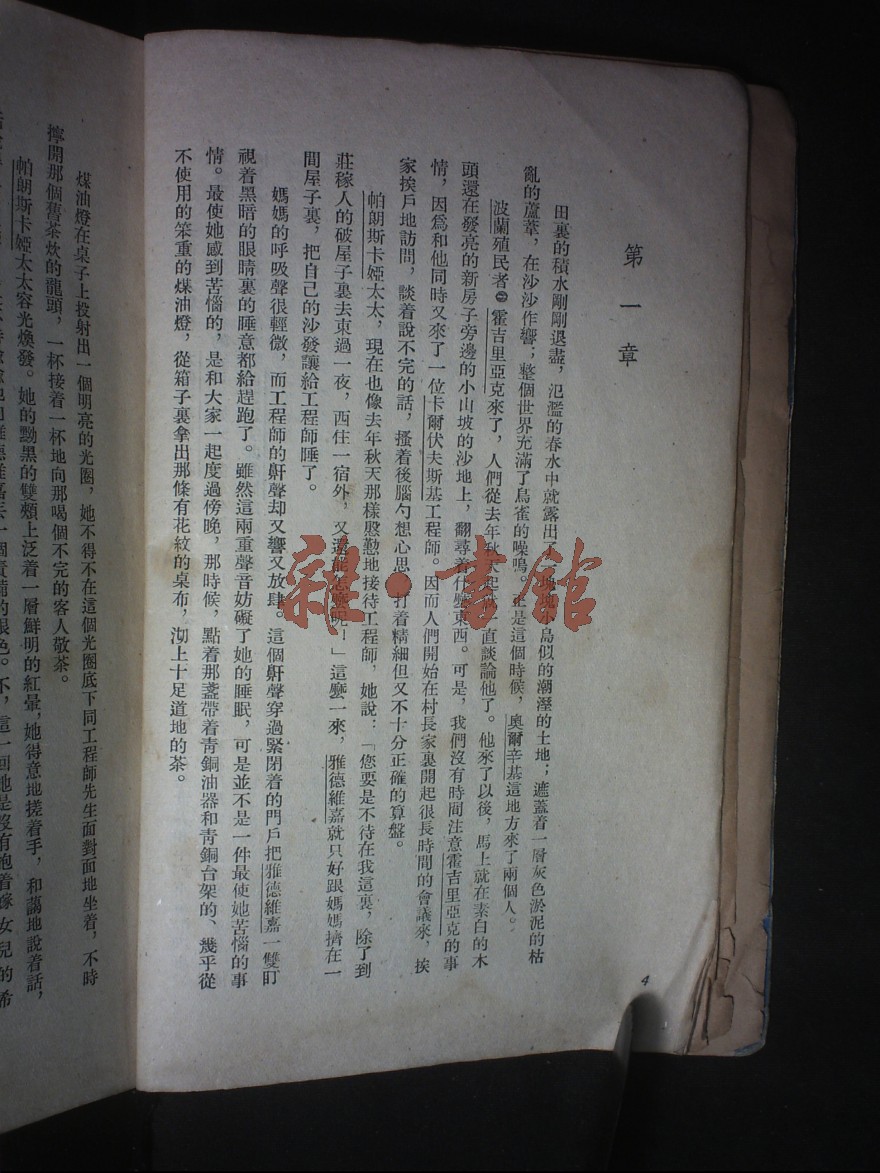 第一章
田裏的積水剛剛退盡，氾濫的春水中就露出了一塊塊小島似的潮溼的土地；遮蓋着一層灰色淤泥的枯
亂的蘆葦，在沙沙作響；整個世界充滿了鳥雀的噪鳴。正是這個時候，奧爾辛基這地方來了兩個人。
波蘭殖民者㊁霍吉里亞克來了，人們從去年秋天起就一直談論他了。他來了以後，馬上就在素白的木
頭還在發亮的新房子旁邊的小山坡的沙地上，翻尋着什麼東西。可是，我們沒有時間注意霍吉里亞克的事
情，因爲和他同時又來了一位卡爾伏夫斯基工程師。因而人們開始在村長家裏開起很長時間的會議來，挨
家挨戶地訪問，談着說不完的話，搔着後腦勺想心思，打着精細但又不十分正確的算盤。
帕朗斯卡婭太太，現在也像去年秋天那樣慇懃地接待工程師，她說：「您要是不待在我這裏，除了到
莊稼人的破屋子裏去東過一夜，西住一宿外，又還能怎麼呢！」這麼一來，雅德維嘉就只好跟媽媽擠在一
間屋子裏，把自己的沙發讓給工程師睡了。
媽媽的呼吸聲很輕微，而工程師的鼾聲却又響又放肆。這個鼾聲穿過緊閉着的門戶把雅德維嘉一雙盯
視着黑暗的眼睛裏的睡意都給趕跑了。雖然這兩重聲音妨礙了她的睡眠，可是並不是一件最使她苦惱的事
情。最使她感到苦惱的，是和大家一起度過傍晚，那時候，點着那盞帶着青銅油器和青銅台架的、幾乎從
不使用的笨重的煤油燈，從箱子裏拿出那條有花紋的桌布，沏上十足道地的茶。
4
煤油燈在桌子上投射出一個明亮的光圈，她不得不在這個光圈底下同工程師先生面對面地坐着，不時
擰開那個舊茶炊的龍頭，一杯接着一杯地向那喝個不完的客人敬茶。
帕朗斯卡婭太太容光煥發。她的黝黑的雙頰上泛着一層鮮明的紅暈，她得意地搓着手，和藹地說着話，
一個責備的眼色。不，這一回她是沒有抱着嫁女兒的希
雜·書館